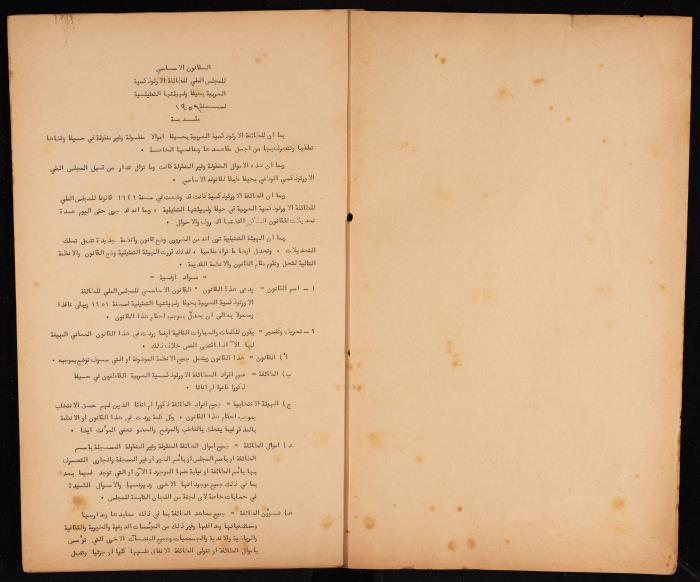 القانون الاساسي
للمجلس الملي للطائفة الارثوذكسية
العربية بحيفا ولهيئتها التمثيلية
لسنة ١٩٥٦
مقدمة
بما ان للطائفة الارثوذكسية العربية بحيفا اموالا منقولة وغير منقولة في حيفا وقضائها
تملكها وتتصرف بها من اجل مقاصدها ومنافعها الخاصة ٠
وبما ان هذه الاموال المنقولة وغير المنقولة كانت وما تزال تدار من قبل المجلس الملي
الارثوذكسي الوطني بحيفا طبقا لقانونه الاساسي ٠
وبما ان الطائفة الارثوذكسية كانت قد وضعت في سنة ١٩٢٦ قانونا للمجلس الملي
للطائفة الارثوذكسية العربية في حيفا ولهيئتها التمثيلية ٠ وبما انه قد جرى حتى اليوم عدة
تعديلات للقانون المذكور اقتضتها الظروف والاحوال ٠
وبما ان الهيئة التمثيلية ترى انه من الضروري وضع قانون وانظمة جديدة تشمل تلك
التعديلات ٠ وتعديل ايضا ما تراه مناسبا ٠ لذلك قررت الهيئة التمثيلية وضع القانون والانظمة
التالية لتحل وتقوم مقام القانون والانظمة القديمة ٠
" مواد اولية "
١ – اسم القانون " يدعى هذا القانون " القانون الاساسي للمجلس الملي للطائفة
الارثوذكسية العربية بحيفا ولهيئتها التمثيلية لسنة ١٩٥٦ ويبقى نافذا
ومعمولا به الى ان يعدل بموجب احكام هذا القانون ٠
٢ – تعريف وتفسير " يكون للكلمات والعبارات التالية اينما وردت في هذا القانون المعاني المبينة
لها الا اذا اقتضى النص خلاف ذلك ٠
أ) القانون " هذا القانون ويشمل جميع الانظمة الموضوعة او التي سوف توضع بموجبه ٠
ب) الطائفة " هم افراد الطائفة الارثوذكسية العربية القاطنون في حيفا
ذكورا كانوا ام اناثا ٠
ج) الهيئة الانتخابية " جميع افراد الطائفة ذكورا ام اناثا الذين لهم حق الانتخاب
بموجب احكام هذا القانون ٠ وكل كلمة وردت في هذا القانون او الانظمة
بالمذكر فيما يتعلق بالناخب والمرشح والعضو تعني المؤنث ايضا ٠
د) اموال الطائفة " جميع اموال الطائفة المنقولة وغير المنقولة المسجلة باسم
الطائفة او باسم المجلس او باسم الغير او غير المسجلة والجاري التصرف
بها باسم الطائفة او نيابة عنها الموجودة الآن او التي توجد فيما بعد
بما في ذلك جميع موجوداتها الاخرى وديونها والاموال المقيدة
في حسابات خاصة لاي لجنة من اللجان التابعة للمجلس ٠
هـ) شؤون الطائفة " جميع معاهد الطائفة بما في ذلك معابدها ومدارسها
ومستشفياتها ومدافنها وغير ذلك من المؤسسات الدينية والخيرية والثقافية
والرياضية والاندية والجمعيات وجميع المؤسسات الاخرى التي تؤسس
باموال الطائفة او تتولى الطائفة الانفاق عليها كليا او جزئيا وتشمل